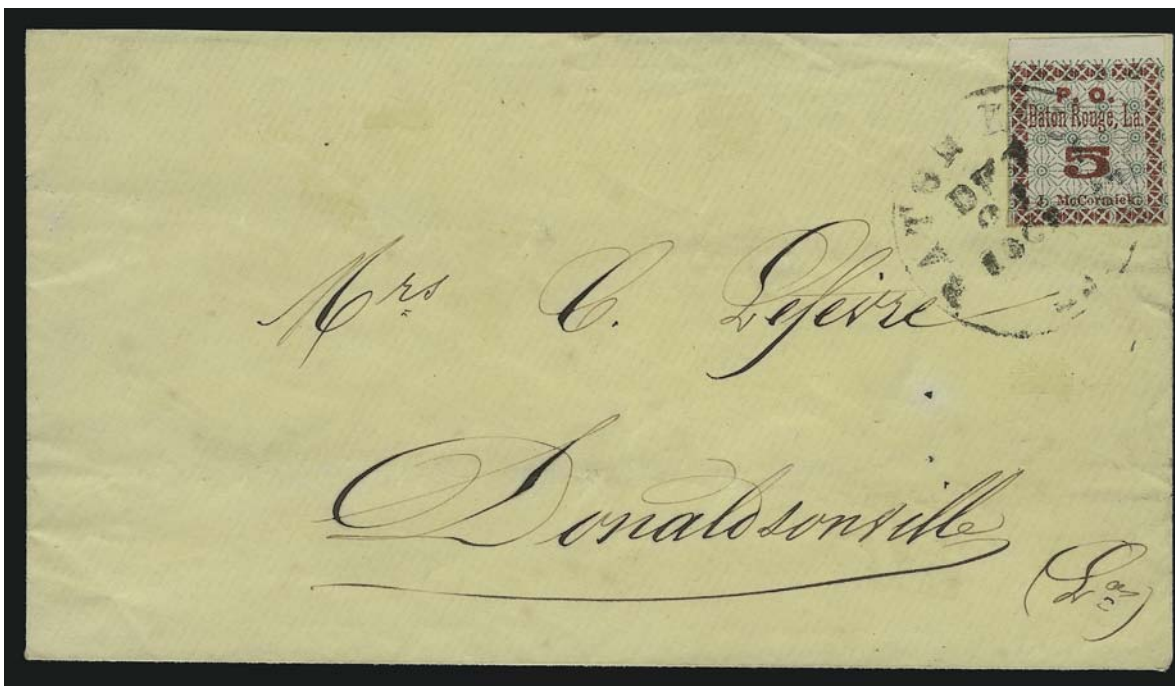 P. O.
Baton Rouge, La.
5
J. McCormick.
BATON
Mrs C. Lefevre
Donaldsonville
(La)